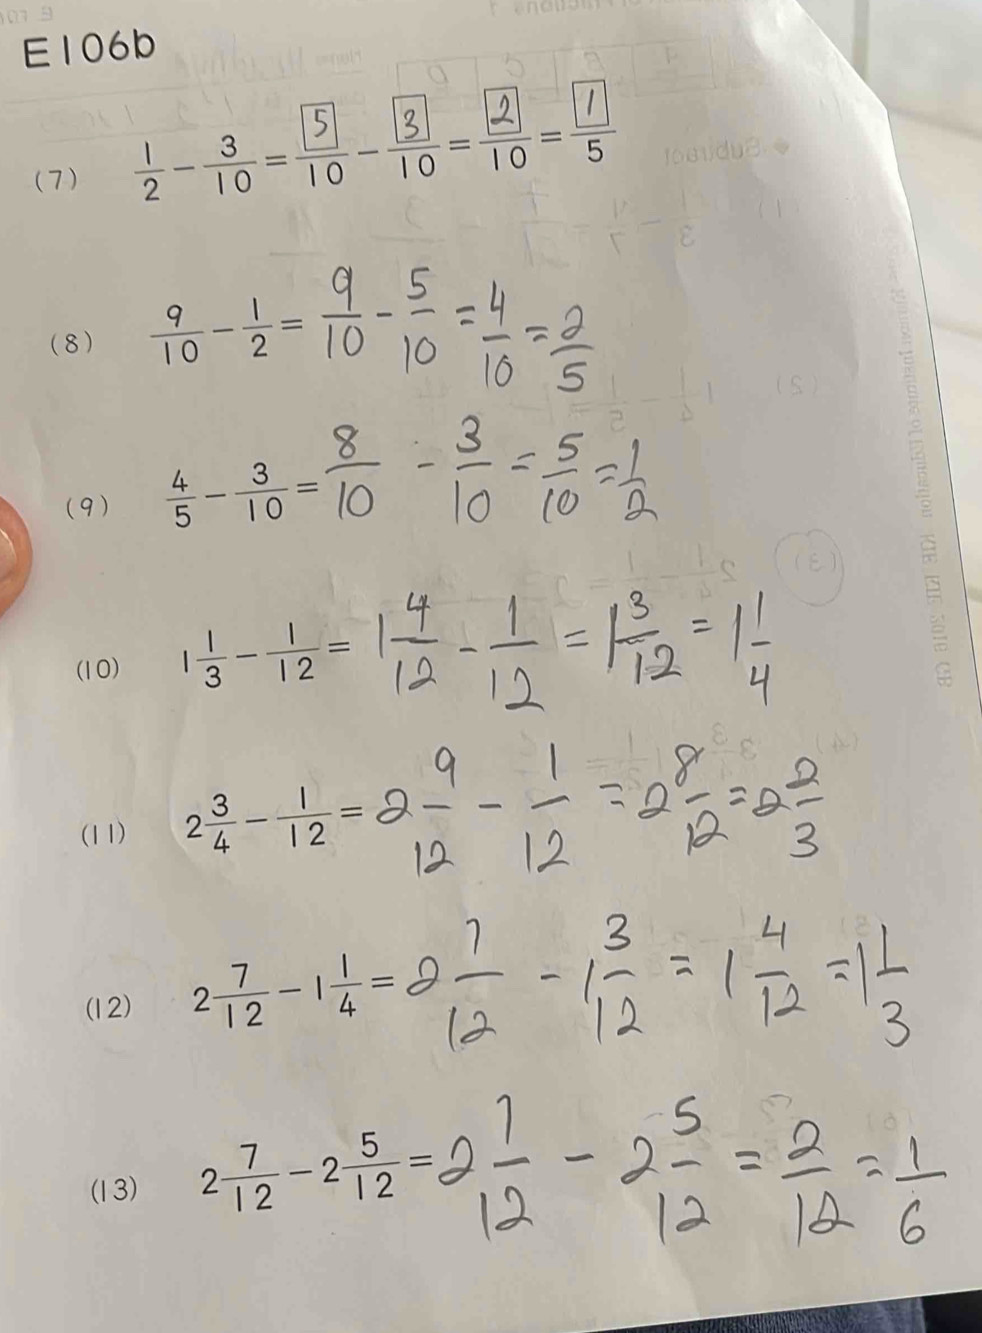 E106b
(7) 1/2 - 3/10 = 5/10 - 3/10 = 2/10 = 1/5
(8) 9/10 - 1/2 = 9/10 - 5/10 = 4/10 = 2/5
(9) 4/5 - 3/10 = 8/10 - 3/10 = 5/10 = 1/2
(10) 1 1/3 - 1/12 = 1 4/12 - 1/12 = 1 3/12 = 1 1/4
(11) 2 3/4 - 1/12 = 2 9/12 - 1/12 = 2 8/12 = 2 2/3
(12) 2 7/12 - 1 1/4 = 2 7/12 - 1 3/12 = 1 4/12 = 1 1/3
(13) 2 7/12 - 2 5/12 = 2 7/12 - 2 5/12 = 2/12 = 1/6